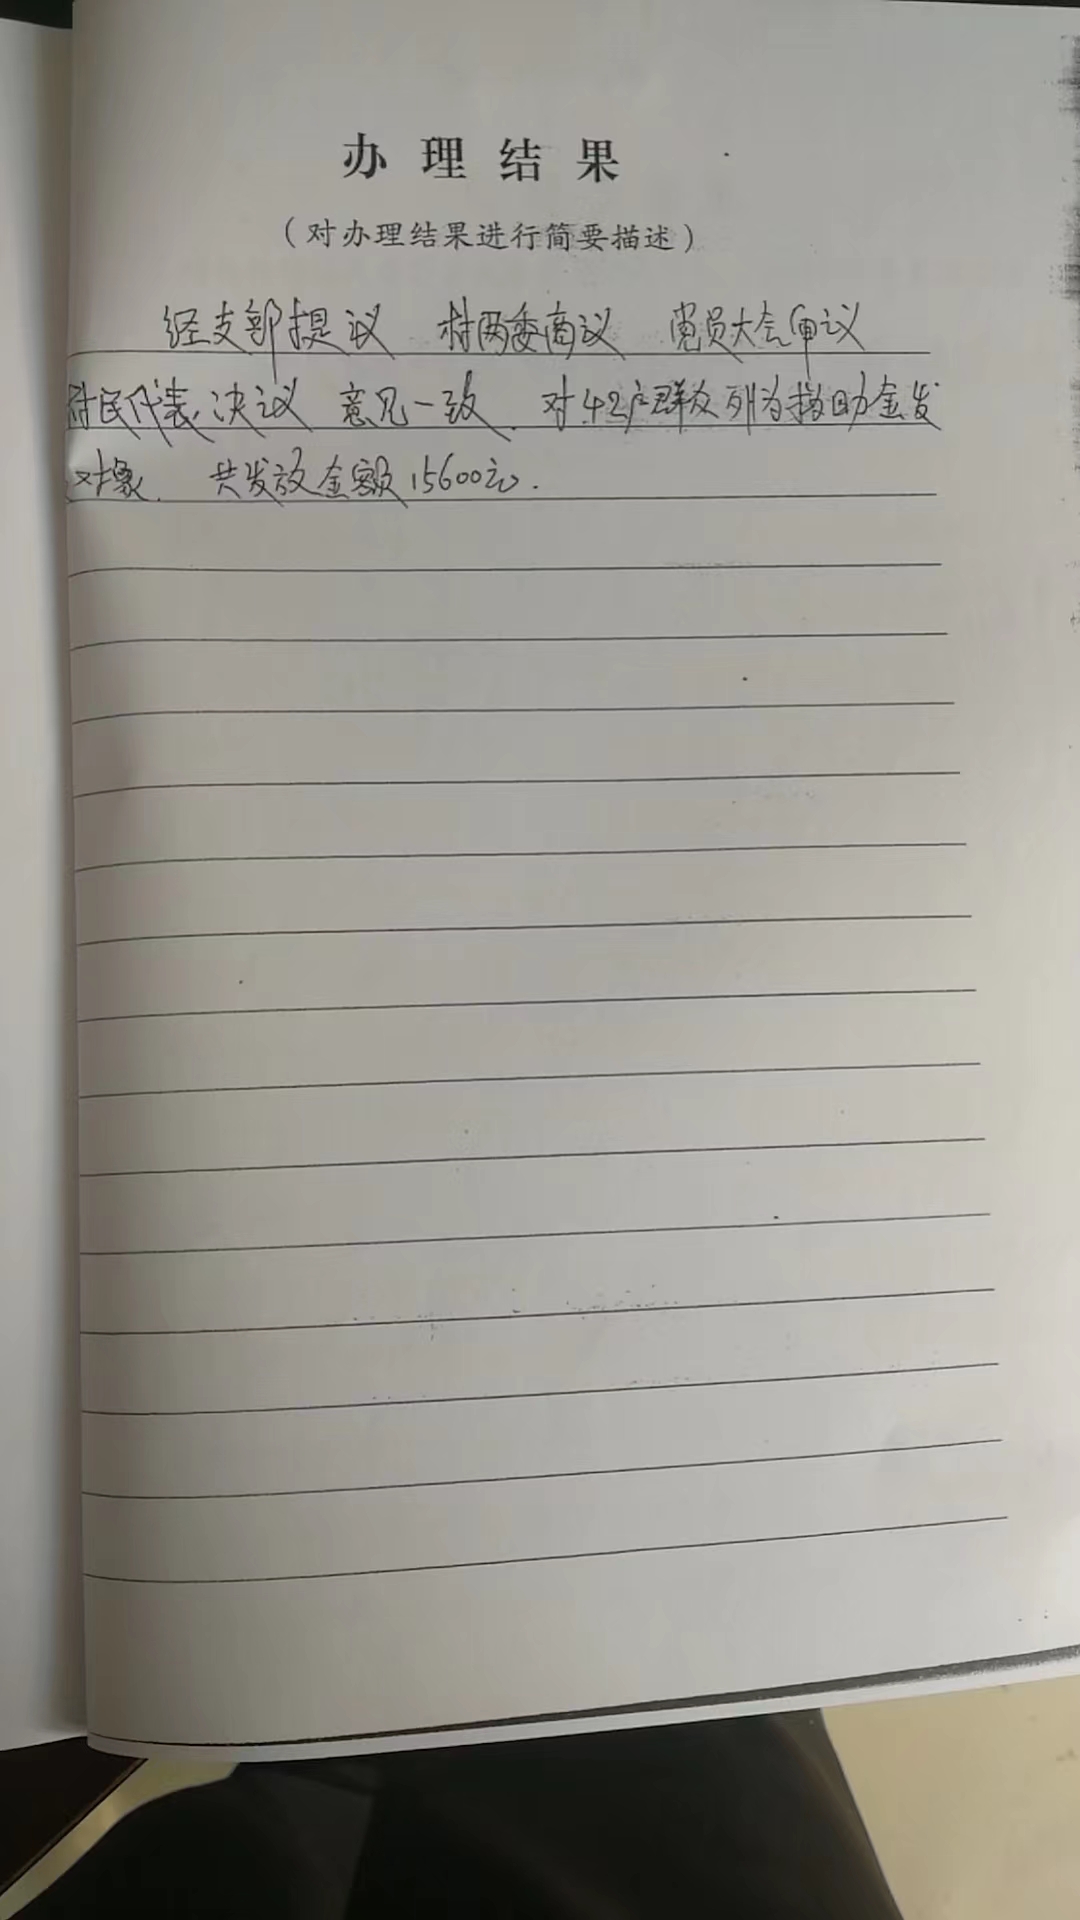 办理结果
（对办理结果进行简要描述）
经支部提议 村两委商议 党员大会审议
村民代表决议 意见一致. 对42户群众列为 助金发
对象. 共发放金额15600元.